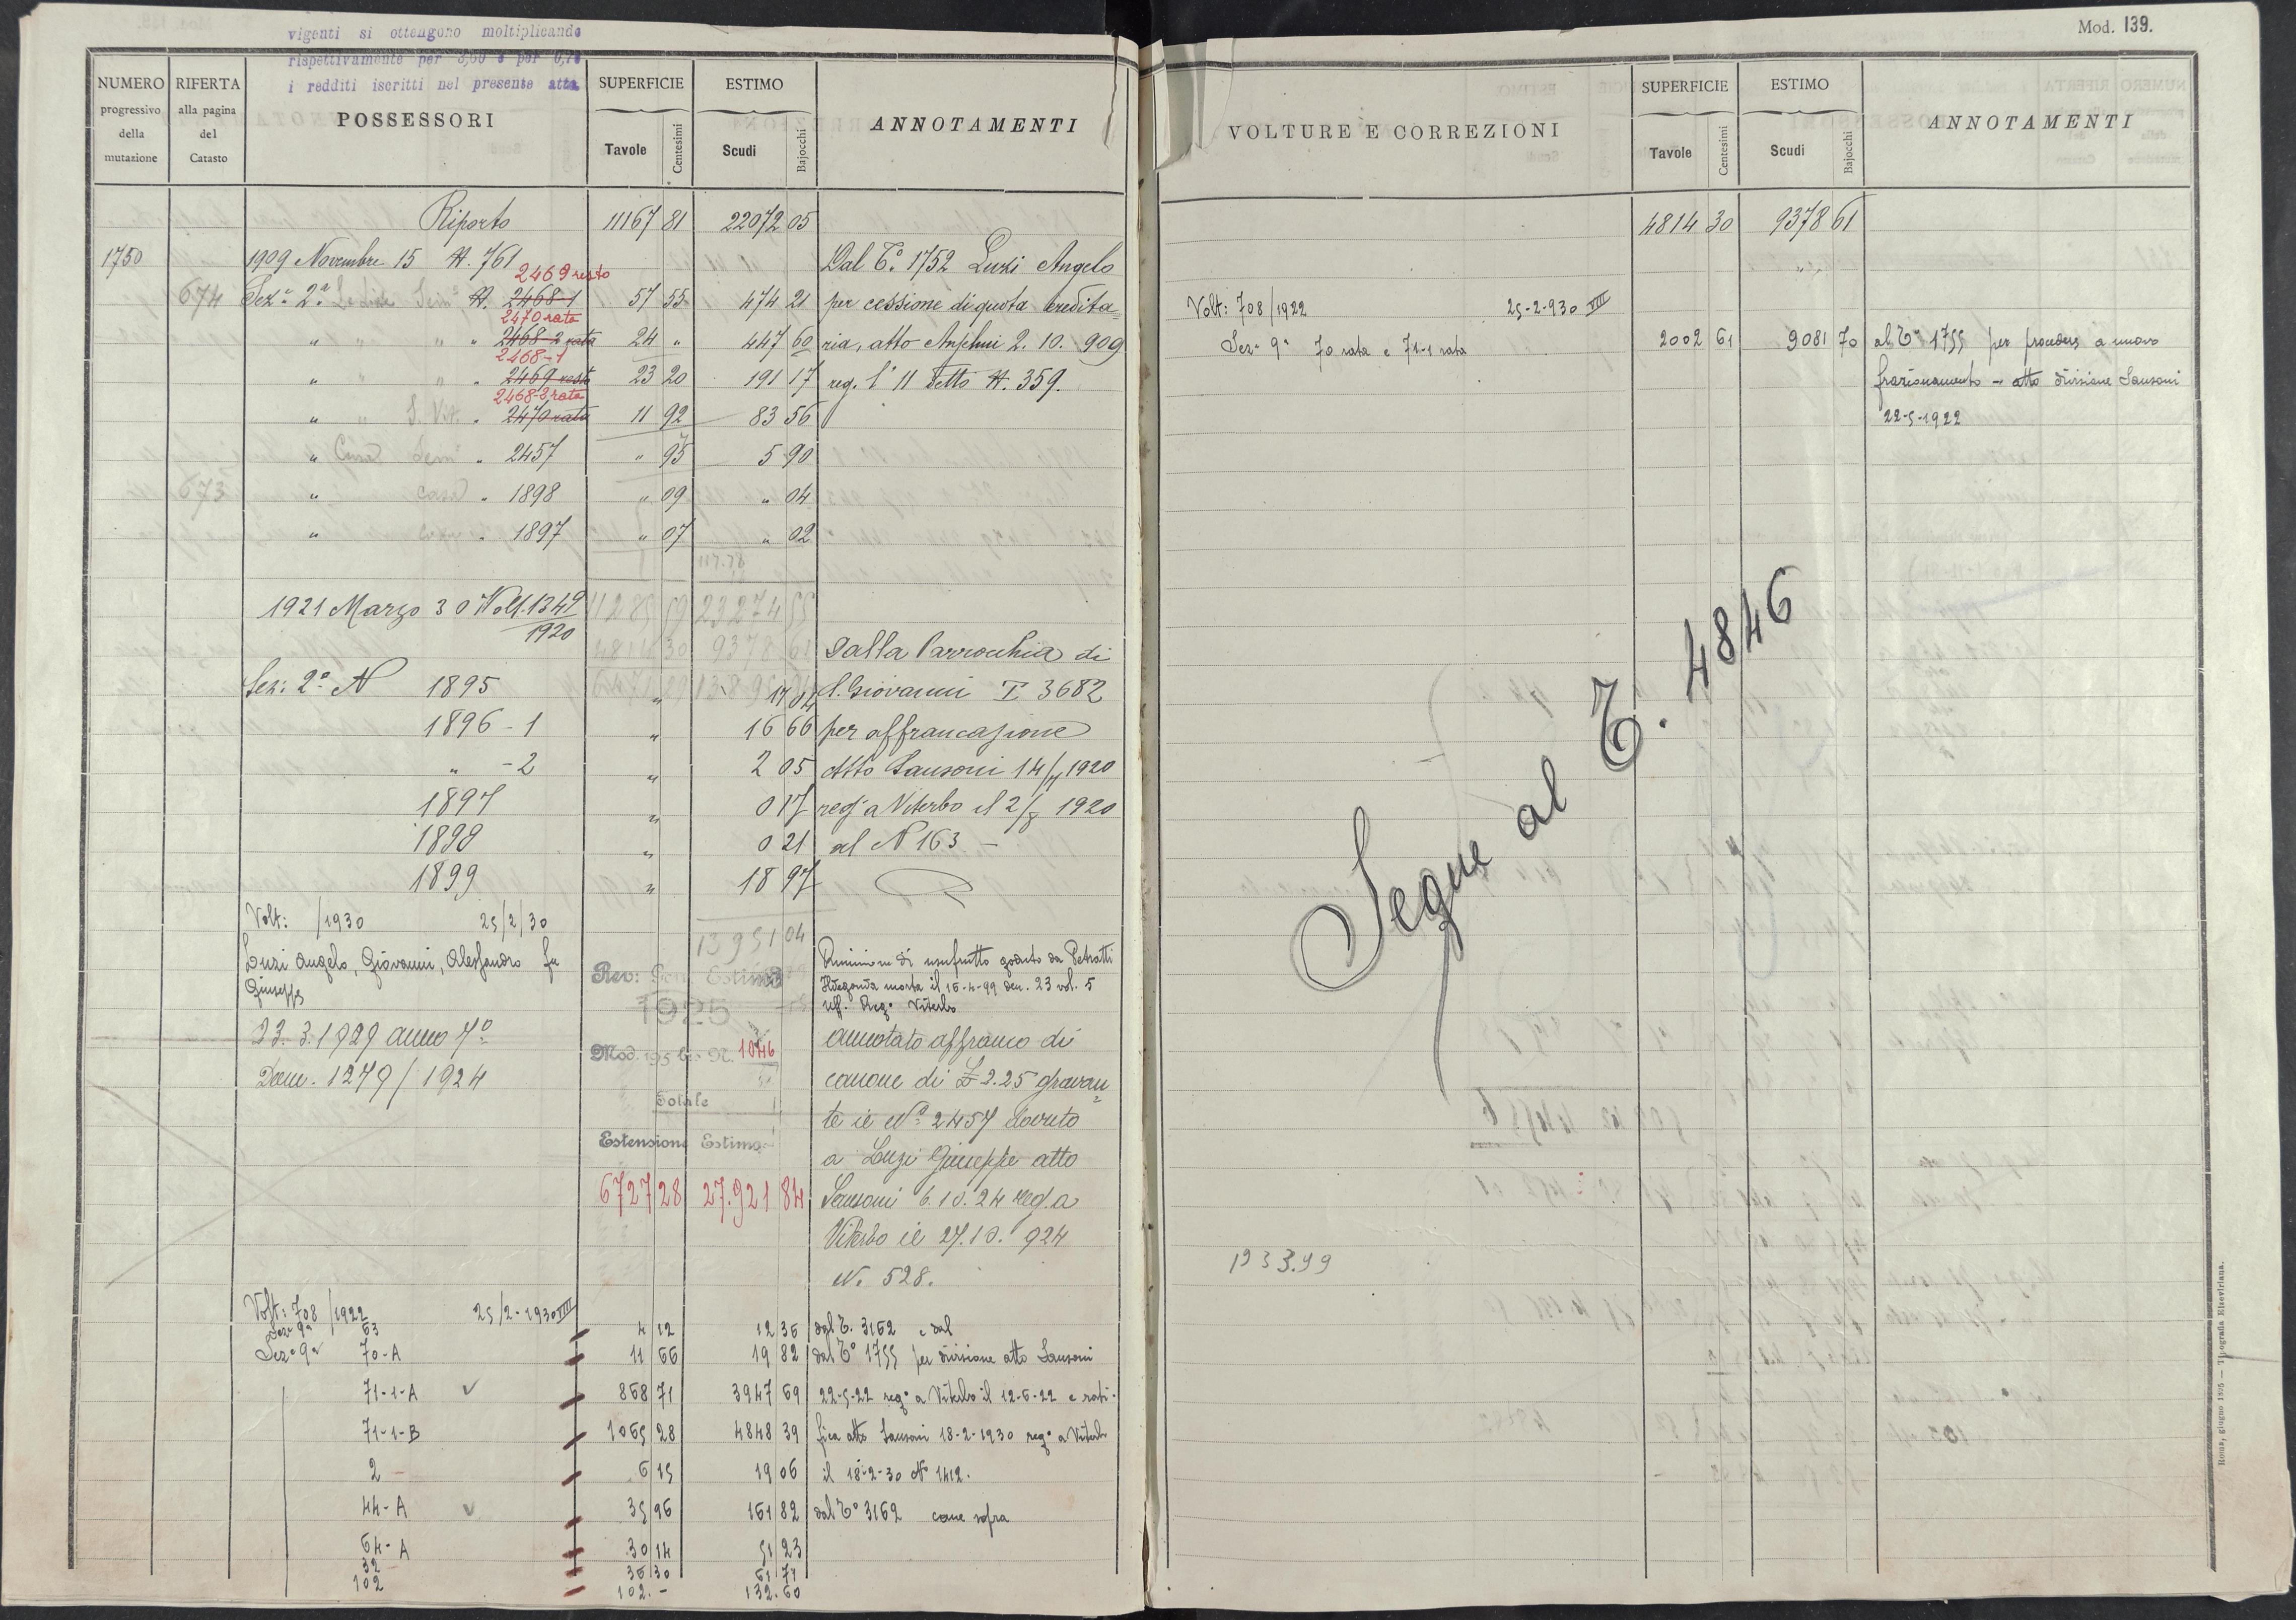 vigenti si ottengono moltiplicando
rispettivamente per 3,60 e per 0,78
i redditi iscritti nel presente atto
NUMERO progressivo della mutazione
RIFERTA alla pagina del Catasto
POSSESSORI
SUPERFICIE Tavole Centesimi
ESTIMO Scudi Bajocchi
ANNOTAMENTI
Riporto 11167 81 22072 05
1750 1909 Novembre 15 N. 761 Dal T.º 1752 Luzi Angelo
2469 resto
674 Sez.ª 2ª N. 2468-1 57 55 474 21 per cessione di quota eredita=
2470 rata
" " " " 2468-2 rata 24 " 447 60 ria, atto Anselmi 2. 10. 909
2468-1
" " " " 2469 resto 23 20 191 17 reg. l' 11 detto N. 359.
2468-2 rata
" " S. Vit. " 2470 rata 11 92 83 56
" Cura Sem " 2457 " 95 5 90
673 " casa " 1898 " 09 " 04
" " 1897 " 07 " 02
117.78
1921 Marzo 30 Volt. 1349 11285 59 23274 55
1920
4814 30 9378 61 Dalla Parrocchia di
Sez: 2ª N 1895 " 17 04 S. Giovanni T 3682
1896-1 " 16 66 per affrancazione
" -2 " 2 05 Atto Sansoni 14/7 1920
1897 " 0 17 reg a Viterbo il 2/8 1920
1898 " 0 21 al N 163 –
1899 " 18 97
Volt: /1930 25/2/30
13951 04
Luzi Angelo, Giovanni, Alessandro fu
Giuseppe
Riunione di usufrutto goduto da Petratti
Ildegonda morta il 15-4-99 den. 23 vol. 5
Uff. Reg.º Viterbo
Rev: Gen Estimi
1925
Mod. 195 bis N. 1046
Totale
Estensione Estimo
6727 28 27.921 84
23. 3. 1929 anno 7º
Dom. 1279/1924
Annotato affranco di
canone di £ 2.25 gravan=
te il Nº 2457 dovuto
a Luzi Giuseppe atto
Sansoni 6.10.24 reg. a
Viterbo il 27.10.924
N. 528.
Volt: 708/1922 25/2-1930 VIII
Sezº 9ª 63 4 12 12 36 dal T. 3162 e dal
Sezº 9ª 70-A 11 66 19 82 dal Tº 1755 per divisione atto Sansoni
71-1-A 868 71 3947 69 22-5-22 regº a Viterbo il 12-6-22 e rati-
71-1-B 1065 28 4848 39 fica atto Sansoni 18-2-1930 regº a Viterbo
2 6 15 19 06 il 18-2-30 Nº 1412.
44-A 35 96 161 82 dal Tº 3162 come sopra
64-A 30 14 51 23
32 36 30 61 71
102 102.- 132.60
Mod. 139.
VOLTURE E CORREZIONI
SUPERFICIE Tavole Centesimi
ESTIMO Scudi Bajocchi
ANNOTAMENTI
4814 30 9378 61
Volt: 708/1922 25-2-930 VIII
Sezº 9ª 70 rata e 71-1 rata 2002 61 9081 70 al Tº 1755 per procedere a nuovo
frazionamento – atto divisione Sansoni
22-5-1922
Segue al T. 4846
1233.99
Roma, giugno 1895 — Tipografia Elzeviriana.